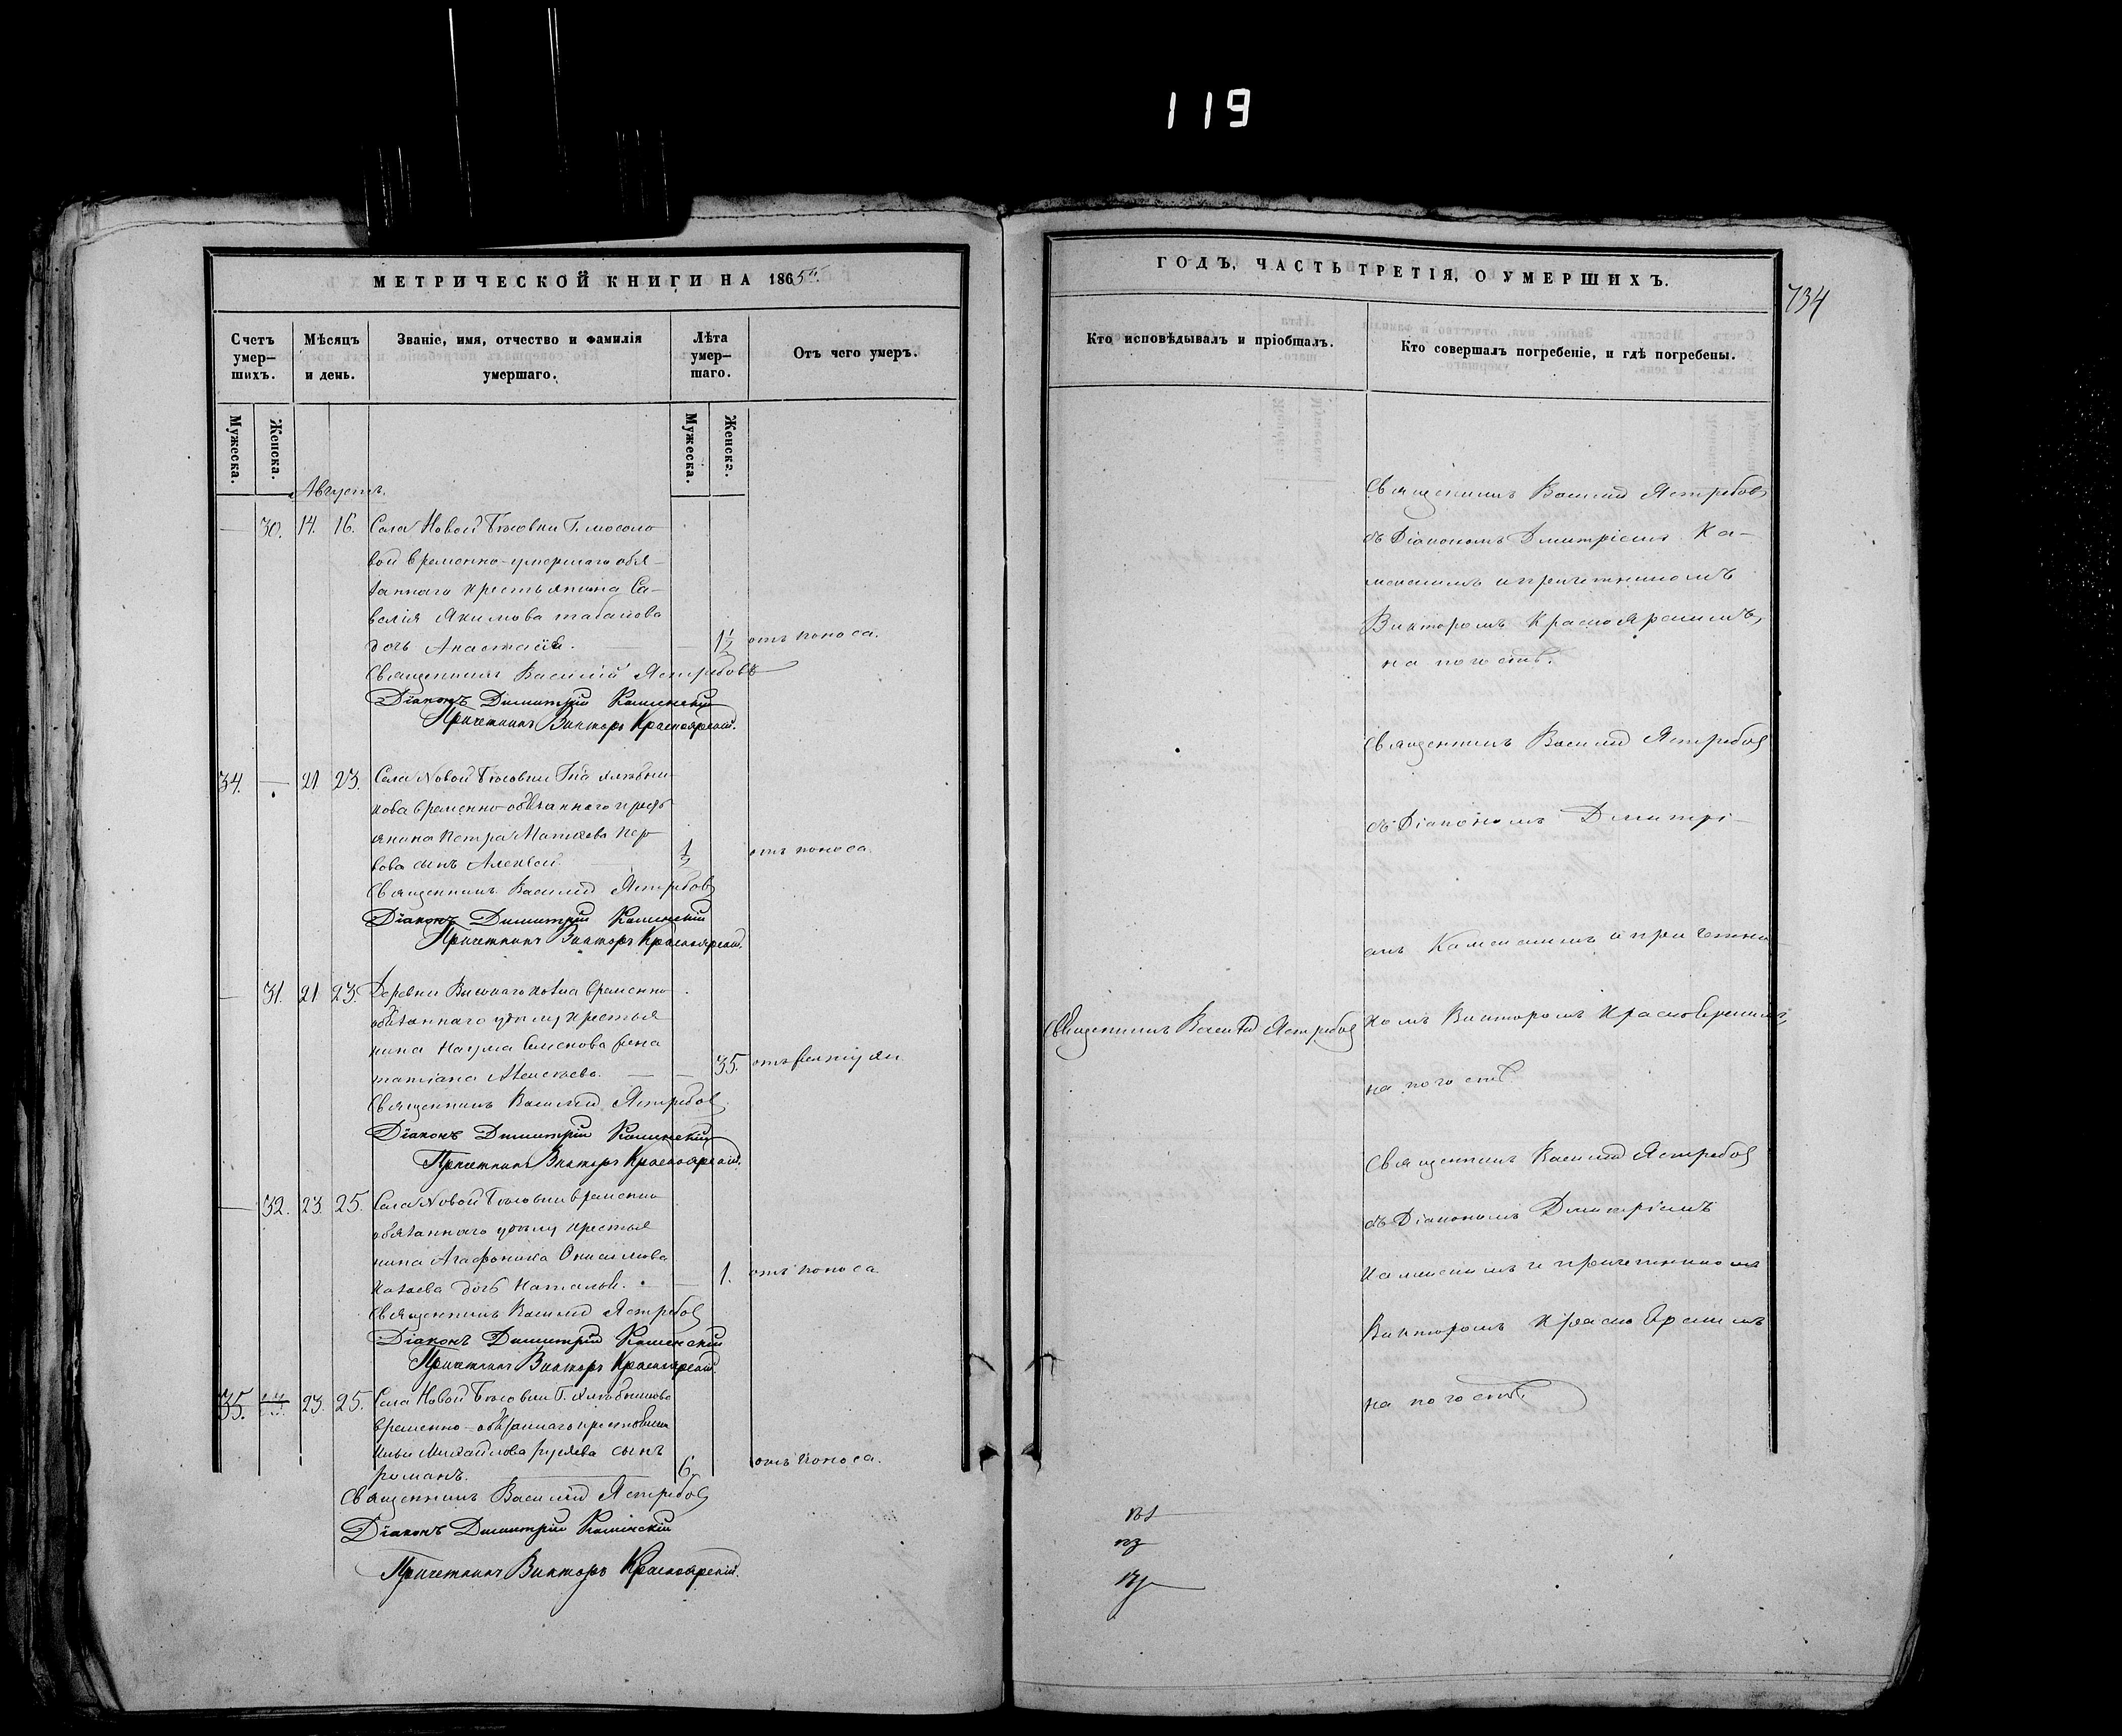 119
МЕТРИЧЕСКОЙ КНИГИ НА 1865й
Счетъ умер-шихъ.
Мѣсяцъ и день.
Званіе, имя, отчество и фамилія умершаго.
Лѣта умер-шаго.
Отъ чего умеръ.
Мужеска.
Женска.
Мужеска.
Женска.
Августъ.
30. 14. 16. Села Новой
вой временно-умершаго обя-
заннаго крестьянина Са-
велія Якимова
дочь Анастасія. 1½ отъ поноса.
Священникъ Василій Ястребовъ
Діаконъ Димитрій Каменскій
Причетникъ Викторъ Красноярскій.
34. 21 23. Села Новой
кова временно-обязаннаго крестъ
янина Петра
сынъ Алексей ½ отъ поноса.
Священникъ Василій Ястребовъ
Діаконъ Димитрій Каменскій
Причетникъ Викторъ Красноярскій.
31. 21 23. Деревни временно
обязаннаго крестья
нина Наума Семенова жена
татіана 35. отъ
Священникъ Василій Ястребовъ
Діаконъ Димитрій Каменскій
Причетникъ Викторъ Красноярскій.
32. 23. 25. Села Новой временно
обязаннаго крестья
нина
дочь Наталья. 1. отъ поноса
Священникъ Василій Ястребовъ
Діаконъ Димитрій Каменскій
Причетникъ Викторъ Красноярскій.
35. 23. 25. Села Новой
временно-обязаннаго крестьянина
Ильи Михайлова сынъ
романъ. 6. отъ поноса.
Священникъ Василій Ястребовъ
Діаконъ Димитрій Каменскій
Причетникъ Викторъ Красноярскій.
ГОДЪ, ЧАСТЬ ТРЕТІЯ, О УМЕРШИХЪ.
734
Кто исповѣдывалъ и пріобщалъ.
Кто совершалъ погребеніе, и гдѣ погребены.
Священникъ Василій Ястребовъ
съ Діакономъ Дмитріемъ Ка-
менскимъ и причетникомъ
Викторомъ Красноярскимъ,
на погостѣ.
Священникъ Василій Ястребовъ
съ Діакономъ Дмитрі-
емъ Каменскимъ и причетни
Священникъ Василій Ястребовъ
комъ Викторомъ Красноярскимъ,
на погостѣ
Священникъ Василій Ястребовъ
съ Діакономъ Дмитріемъ
Каменскимъ и причетникомъ
Викторомъ Красноярскимъ
на погостѣ.